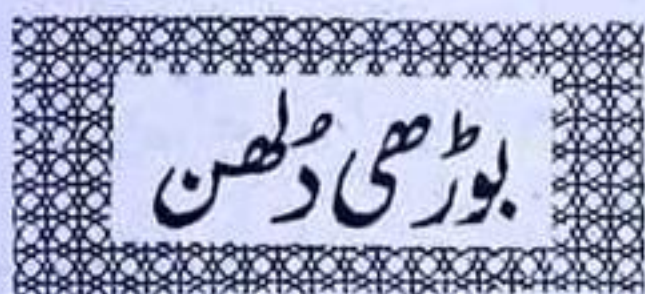 بوڑھی دُلھن